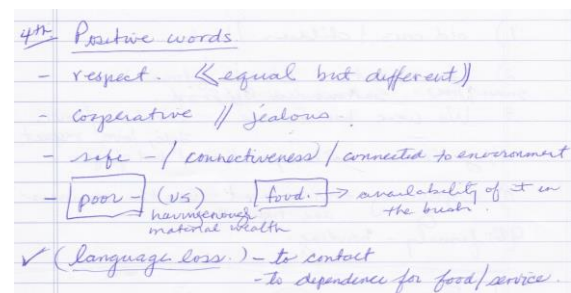 4th Positive words
- respect. ≪equal but different≫
- cooperative // jealous.
- safe - / connectiveness / connected to environment
- poor - (vs) food. → availability of it in
having enough the bush.
material wealth
✓ (language loss.) - to contact
- to dependence for food/service.